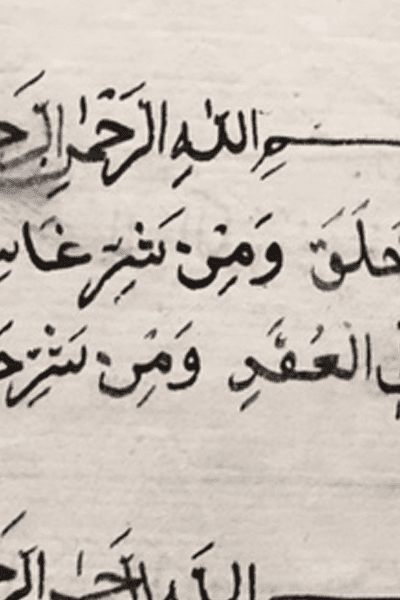 ـمِ اللّٰهِ الرَّحْمٰنِ الرَّحـ
خَلَقَ وَمِنْ شَرِّ غَاسِـ
الْعُقَدِ وَمِنْ شَرِّ حَـ
اللّٰهِ الرَّحْمٰنِ الرَّحـ